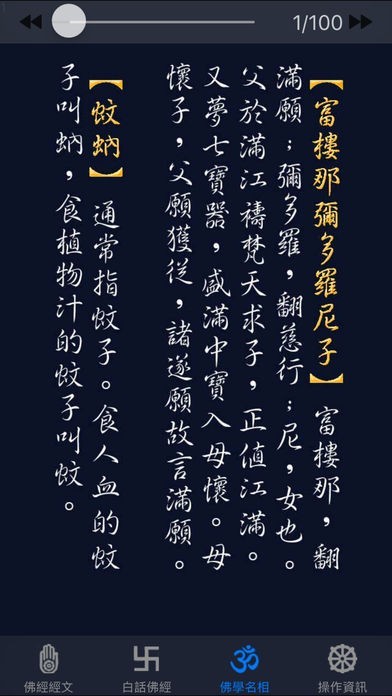 1/100
【富樓那彌多羅尼子】 富樓那，翻
滿願；彌多羅，翻慈行；尼，女也。
父於滿江禱梵天求子，正值江滿。
又夢七寶器，盛滿中寶入母懷。母
懷子，父願獲從，諸遂願故言滿願。
【蚊蚋】 通常指蚊子。食人血的蚊
子叫蚋，食植物汁的蚊子叫蚊。
佛經經文
白話佛經
佛學名相
操作資訊